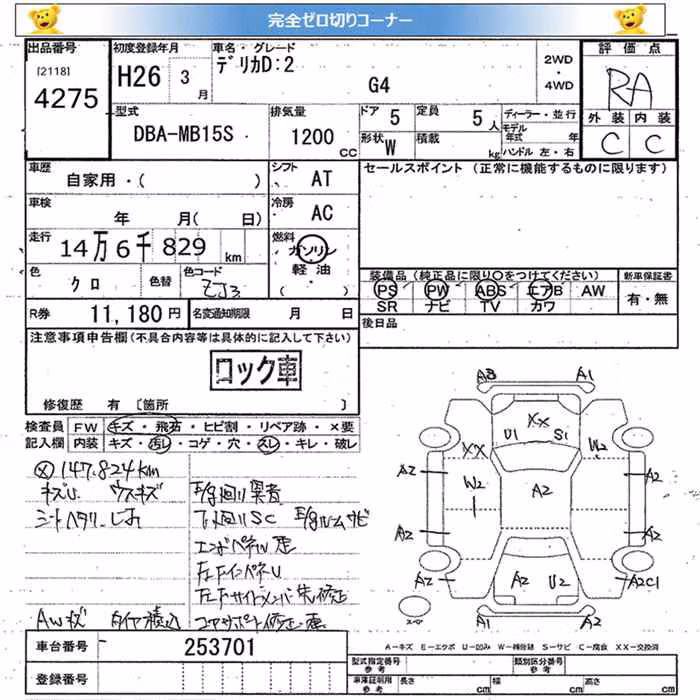 完全ゼロ切りコーナー
出品番号 初度登録年月 車名・グレード 評価点
[2118] H26 3月 デリカD:2 2WD・4WD RA
4275 G4
型式 排気量 ドア 5 定員 5人 ディーラー・並行 外装 内装
DBA-MB15S 1200cc 形状 W 積載 kg モデル年式 年 C C
ハンドル 左・右
車歴 シフト セールスポイント (正常に機能するものに限ります)
自家用・( ) AT
車検 冷房
年 月( 日) AC
走行 燃料
14万6千829km ガソリン
軽油
( )
色 色替 色コード 装備品 (純正品に限り○をつけてください) 新車保証書
クロ ZJ3 PS PW ABS エアB AW 有・無
SR ナビ TV カワ
R券 11,180円 名変通知期限 月 日 後日品
注意事項申告欄 (不具合内容等は具体的に記入して下さい)
ロック車
修復歴 有 [箇所 ]
検査員 FW キズ・飛石・ヒビ割・リペア跡・×要
記入欄 内装 キズ・汚レ・コゲ・穴・スレ・キレ・破レ
147.824km
キズU ウスキズ
シートヘタリ
下廻りSC
AWキズ タイヤ積込
A3 A1
XX
U1 S1
XX W2
A2 W2 A2 A2
A2 A2
A2 A2 U2 A2C1
A1 A2
車台番号 253701
A-キズ E-エクボ U-凹み W-補修跡 S-サビ C-腐食 XX-交換済
登録番号
型式指定番号 参考 類別区分番号 参考
車庫証明用 参考 長さ cm 幅 cm 高さ cm